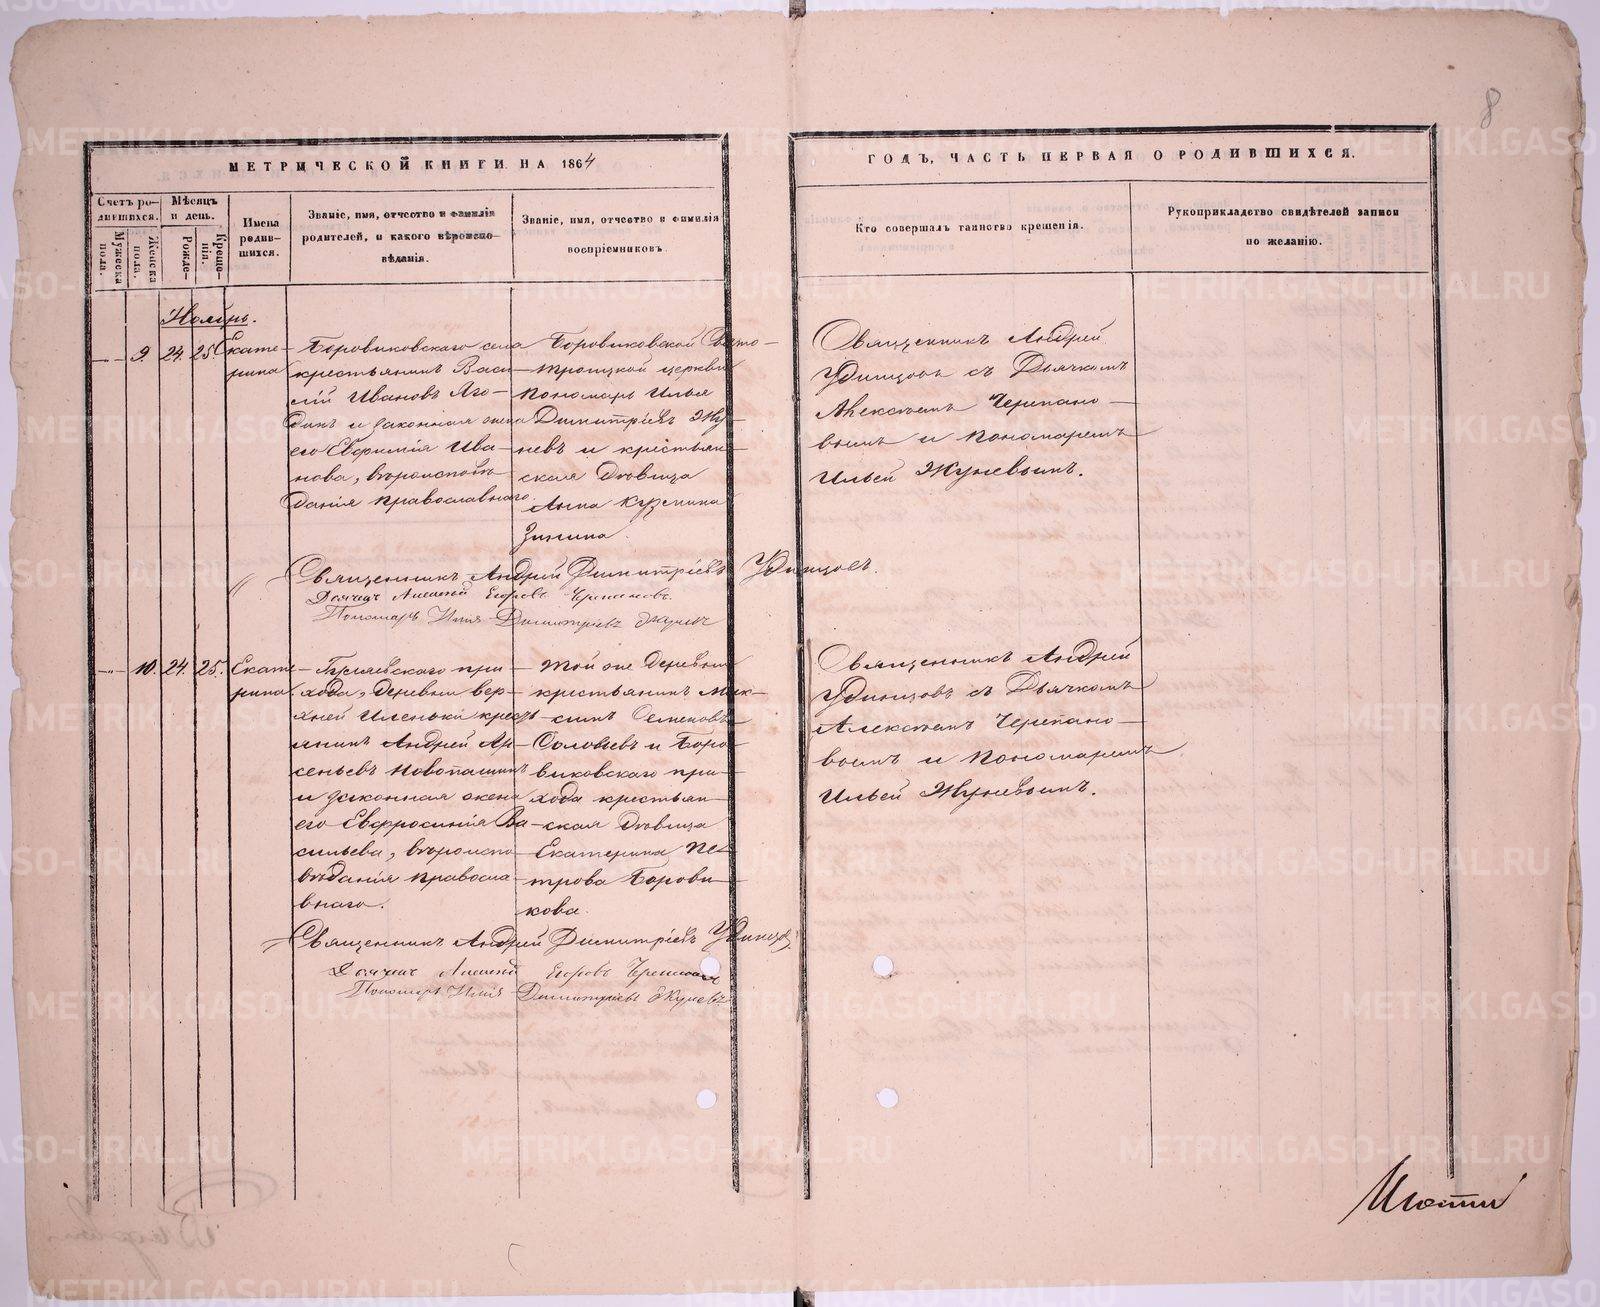 8
МЕТРИЧЕСКОЙ КНИГИ НА 1864
ГОДЪ, ЧАСТЬ ПЕРВАЯ О РОДИВШИХСЯ.
Счетъ ро-
дившихся.
Мужеска
пола.
Женска
пола.
Мѣсяцъ
и день.
Рожде-
нія.
Креще-
Имена
родив-
шихся.
Званіе, имя, отчество и фамилія
родителей, и какого вѣроиспо-
вѣданія.
Званіе, имя, отчество и фамилія
воспріемниковъ.
Кто совершалъ таинство крещенія.
Рукоприкладство свидѣтелей записи
по желанію.
Ноябрь.
9. 24. 25.
Екате-
рина
Боровиковскаго села
крестьянинъ Васи-
лій Ивановъ Яго-
динъ и законная жена
его Евфимія Ива-
нова, вѣроисповѣ-
данія православнаго.
Боровиковской Свято-
троицкой церкви
пономарь Илья
Димитріевъ Жу-
невъ и крестьян-
ская дѣвица
Анна Кузмина
Зинина.
Священникъ Андрей
Удинцовъ съ Дьячкомъ
Алексѣемъ Черепано-
вымъ и пономаремъ
Ильей Жуневымъ.
Священникъ Андрей Димитріевъ Удинцовъ.
Дьячекъ Алексей Егоровъ Черепановъ.
Пономарь Илія Димитріевъ Жуневъ
10. 24. 25.
Екате-
рина
Гуляевскаго при-
хода, деревни вер-
хней Иленьки кресть-
янинъ Андрей Ар-
сеньевъ Новопашинъ
и законная жена
его Евфросинія Ва-
сильева, вѣроиспо-
вѣданія правосла-
внаго.
Той же деревни
крестьянинъ Мак-
симъ Семеновъ
Соловьевъ и Боро-
виковскаго при-
хода крестьян-
ская дѣвица
Екатерина Пе-
трова Борови-
кова.
Священникъ Андрей
Удинцовъ съ Дьячкомъ
Алексѣемъ Черепано-
вымъ и пономаремъ
Ильей Жуневымъ.
Священникъ Андрей Димитріевъ Удинцовъ
Дьячекъ Алексей Егоровъ Черепановъ
Пономарь Илія Димитріевъ Жуневъ
METRIKI.GASO-URAL.RU